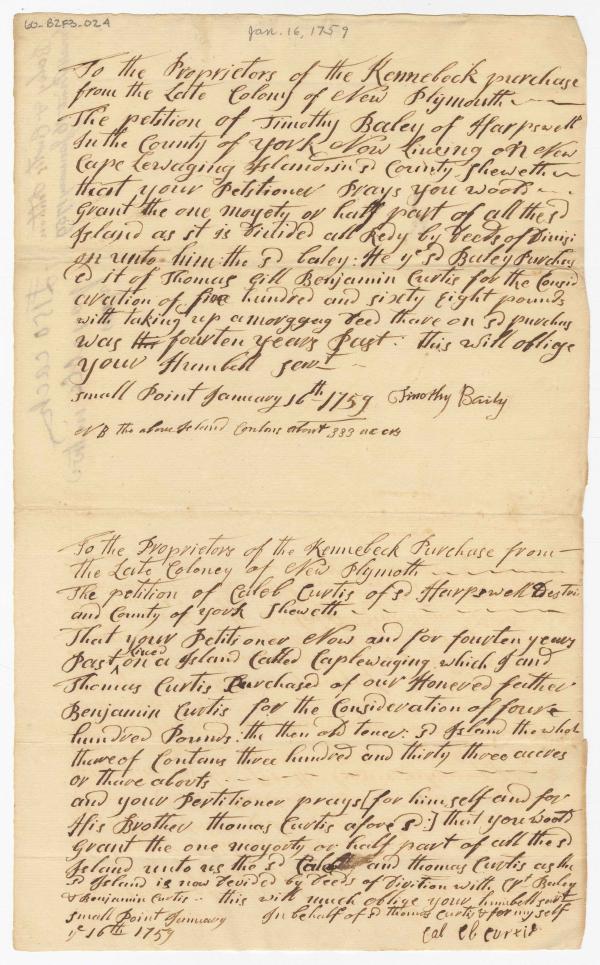 60-B2F3-024
Jan. 16, 1759
To the Proprietors of the Kennebeck purchase
from the Late Colony of New Plymouth
The petition of Timothy Baley of Harpswell
In the County of York Now liueing on New
Cape Lewaging Island in sd County sheweth
that your Petstioner Prays you wood
Grant the one moyety or half part of all the sd
Island as st is Divided all Redy by Deeds of Divisi
on unto him the sd baley: He ye sd Baley Purchas
ed it of Thomas Gill Benjamin Curtis for the Consid
aration of five hundred and sixty Eight pounds
with taking up a morggeag Deed thare on sd purchas
was fourten years Past: this will oblige
your Humbell sert
small Point January 16th 1759 Timothy Baily
N B the above Island Contans about 333 accrs
To the Proprietors of the Kennebeck Purchase from
the Late Coloney of New Plymoth
The petition of Caleb Curtis of sd Harpswell Destri
and County of York Sheweth
That your Petitioner Now and for fourten years
Past lived on a Island Called Caplewaging which I and
Thomas Curtis Purchased of our Honered father
Benjamin Curtis for the Consideration of four
hundred Pounds: the then old tener: sd Island the whole
thare of Contans three hundred and thirty three accres
or thare abouts
and your Pertitioner prays [for himself and for
His Brother thomas Curtis afore sd:] that you wood
Grant the one moyorty or half part of all the sd
Island unto us the sd Caleb and thomas Curtis as the
sd Island is now Devided by Deeds of Divition with Baley
& Benjamin Curtis this will much oblige your humbell sert
small Point January In behalf of sd thomas Curtis & for my self
ye 16th 1759 Cal eb Curtis